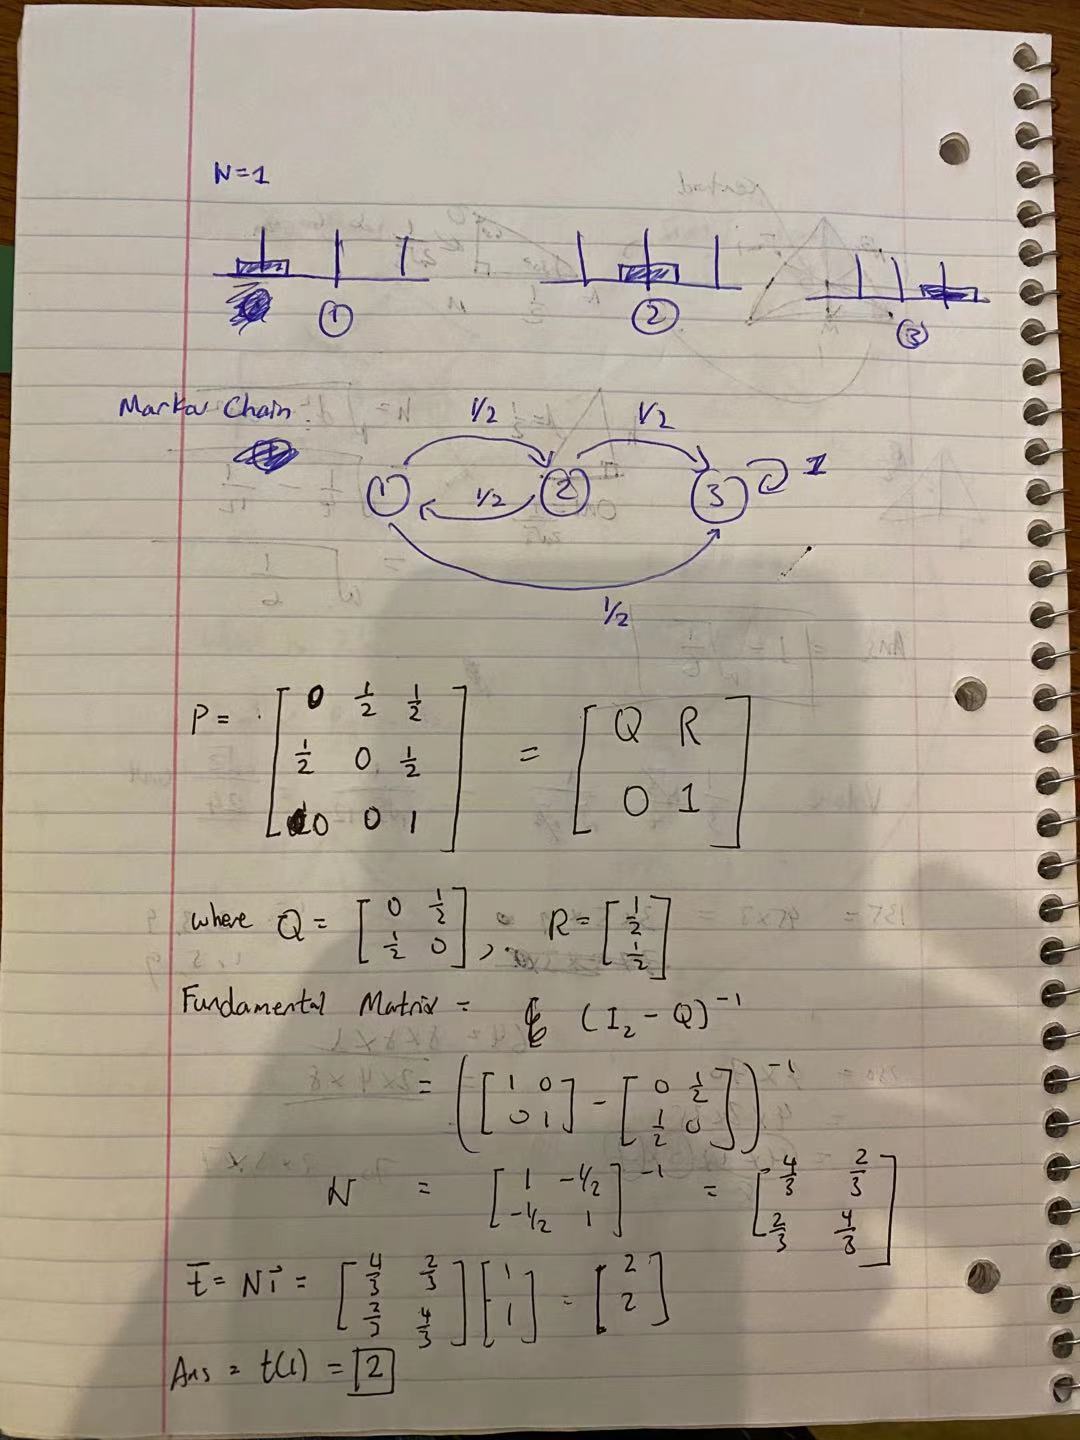 N=1
① ② ③
Markov Chain
1/2 1/2
① 1/2 ② ③ 1
1/2
P = [0 1/2 1/2; 1/2 0 1/2; 0 0 1] = [Q R; 0 1]
where Q = [0 1/2; 1/2 0], R = [1/2; 1/2]
Fundamental Matrix = (I₂ - Q)⁻¹
= ([1 0; 0 1] - [0 1/2; 1/2 0])⁻¹
N = [1 -1/2; -1/2 1]⁻¹ = [4/3 2/3; 2/3 4/3]
t̄ = N1⃗ = [4/3 2/3; 2/3 4/3] [1; 1] = [2; 2]
Ans = t(1) = 2